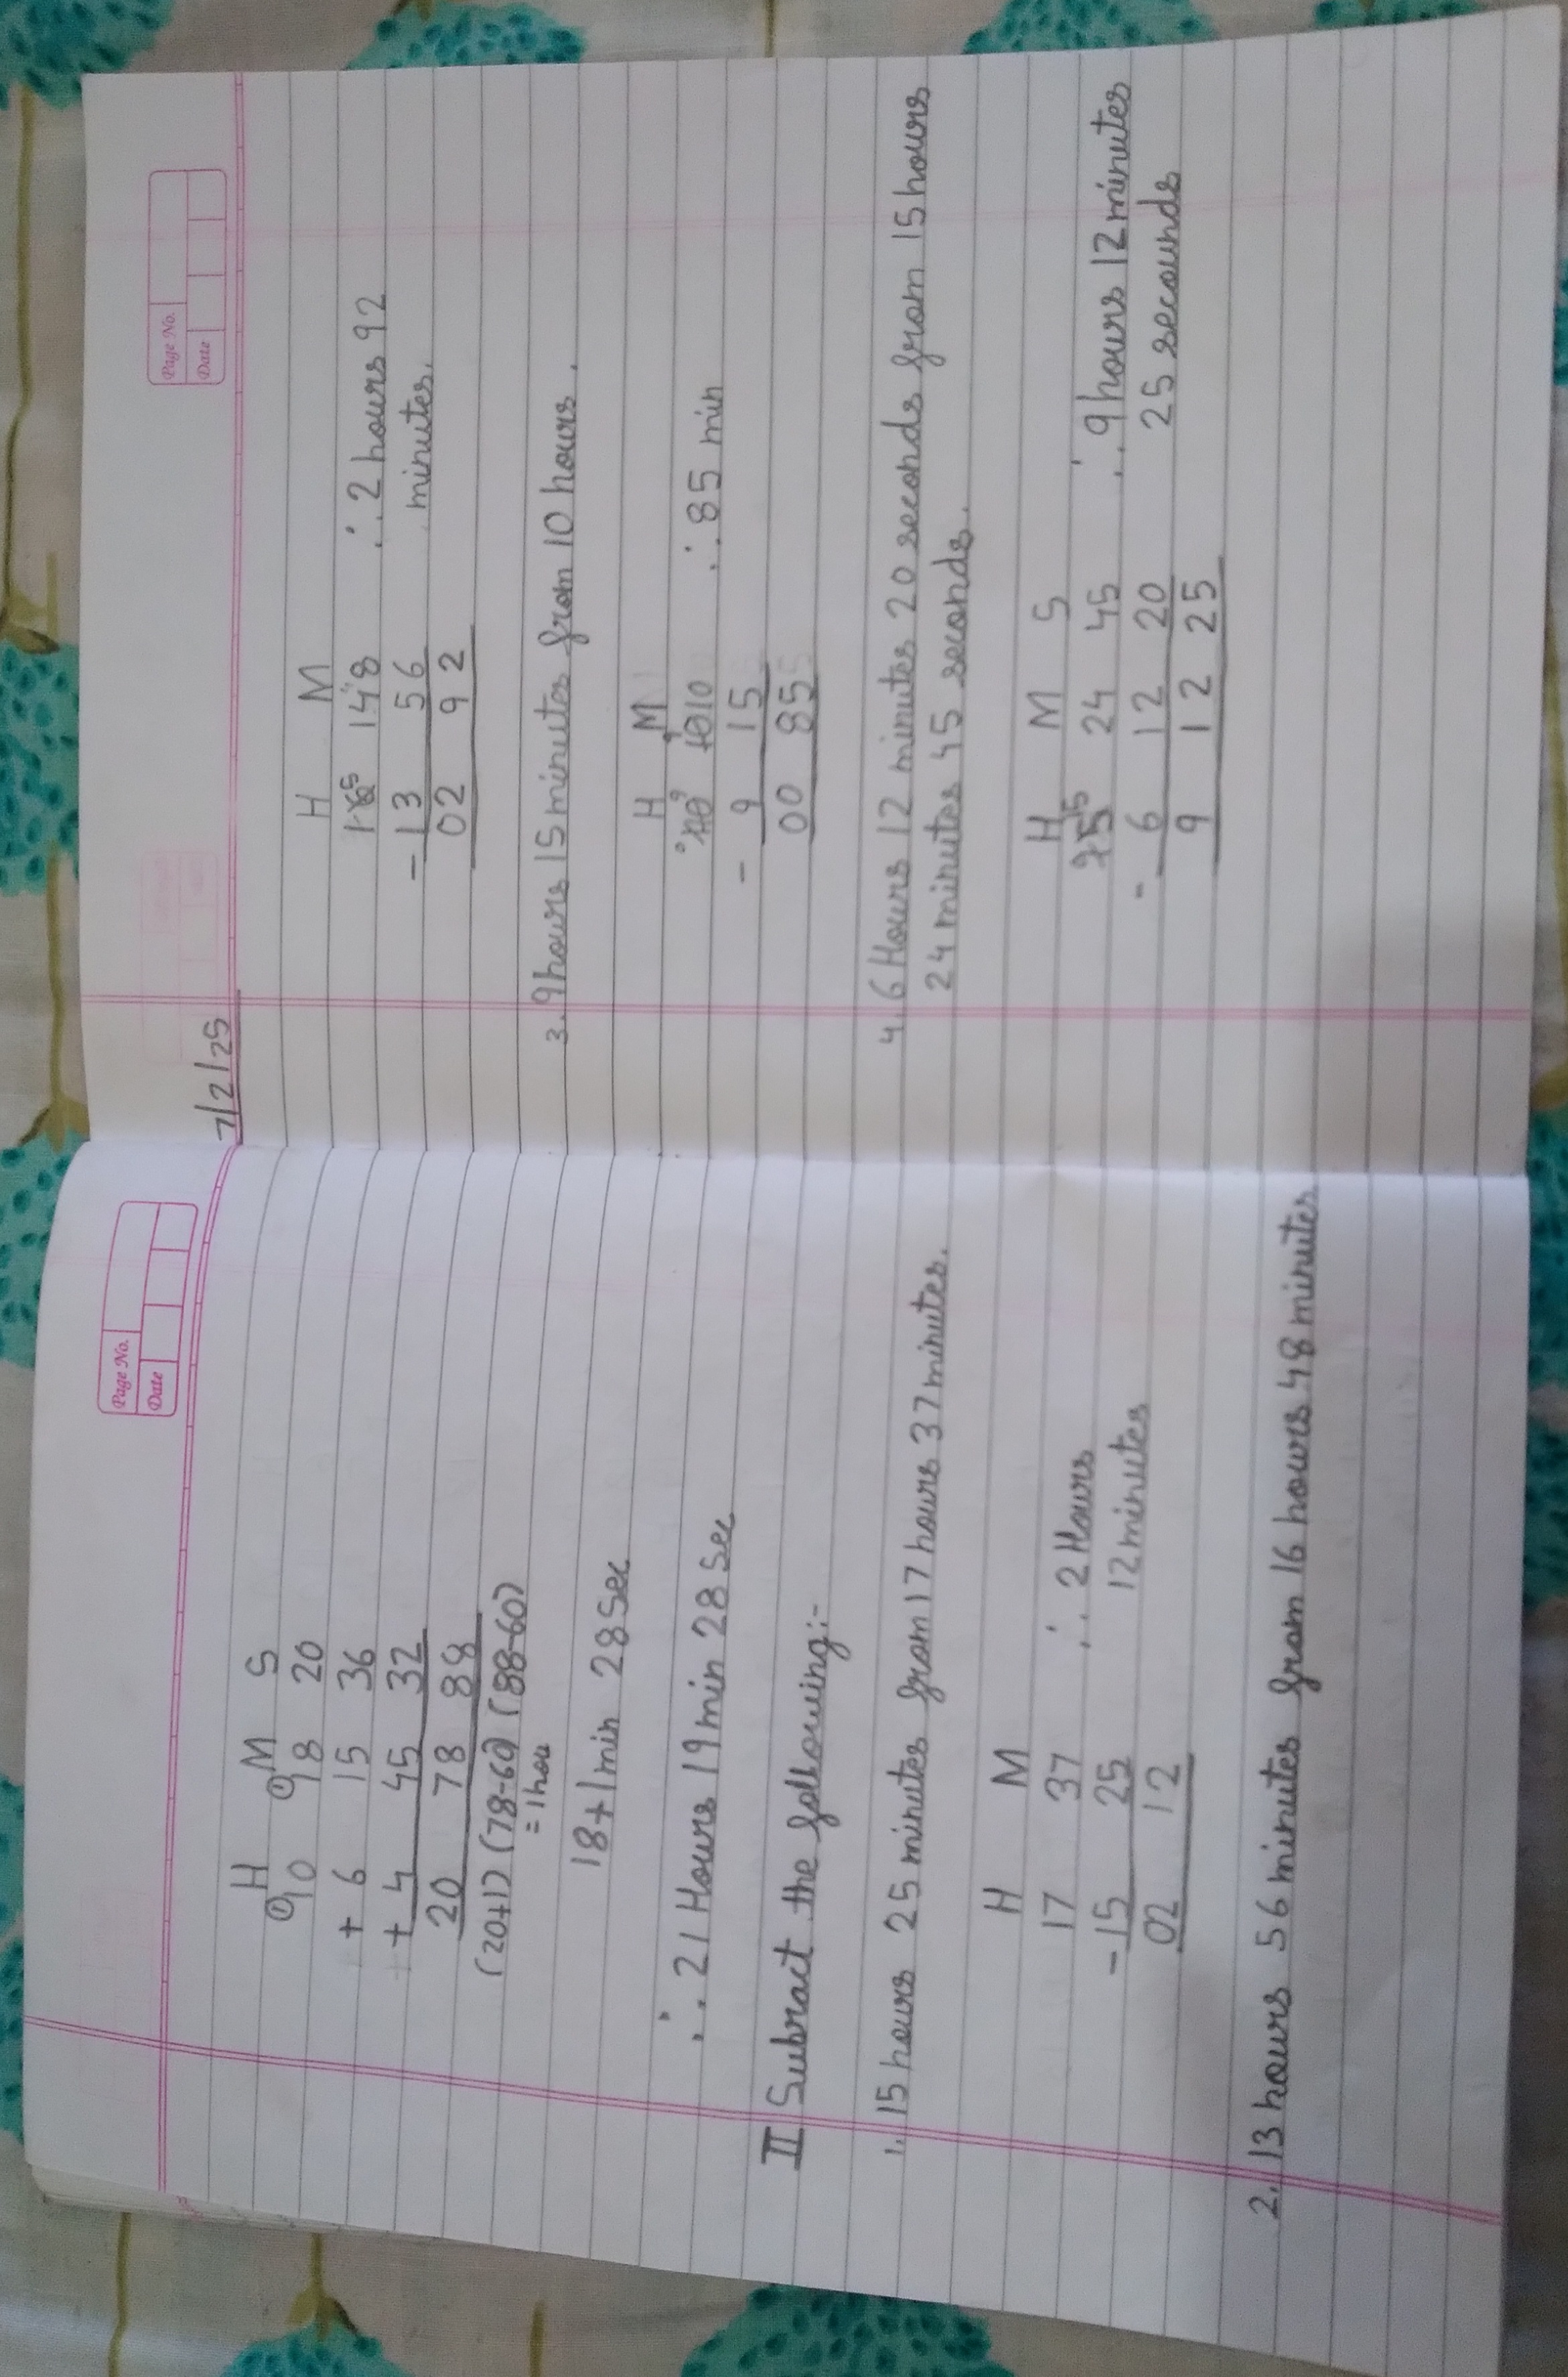 Page No.
Date
H M S
10 18 20
+ 6 15 36
+ 4 45 32
20 78 88
(20+1) (78-60) (88-60)
= 1 hou
18+1 min 28 Sec
∴ 21 Hours 19 min 28 Sec
II Subract the following:-
1. 15 hours 25 minutes from 17 hours 37 minutes.
H M
17 37 ∴ 2 Hours
-15 25 12 minutes
02 12
2. 13 hours 56 minutes from 16 hours 48 minutes
7/2/25
Page No.
Date
H M
16 5 148 ∴ 2 hours 92
- 13 56 minutes.
02 92
3. 9 hours 15 minutes from 10 hours.
H M
10 10 ∴ 85 min
- 9 15
00 85
4. 6 Hours 12 minutes 20 seconds from 15 hours
24 minutes 45 seconds.
H M S
15 24 45 ∴ 9 hours 12 minutes
- 6 12 20 25 secounds
9 12 25